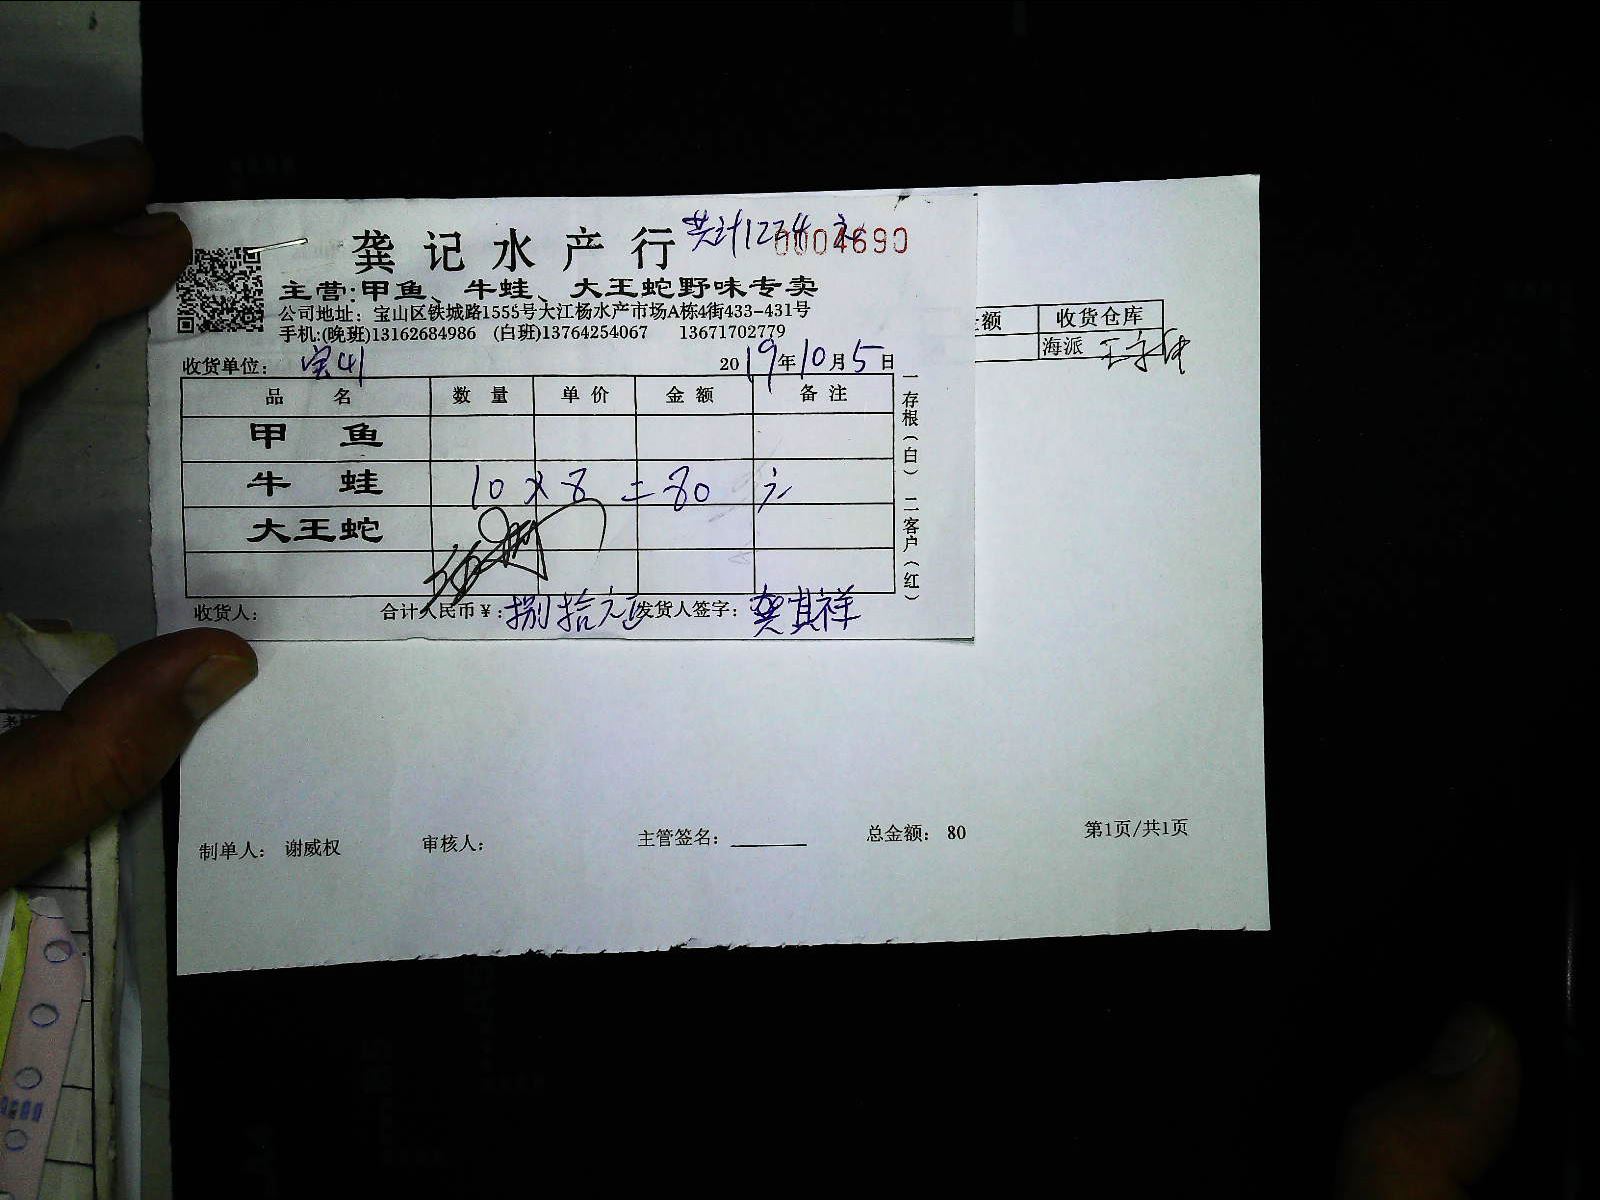 龚记水产行 共计1234元 0004690
主营:甲鱼、牛蛙、大王蛇野味专卖
公司地址：宝山区铁城路1555号大江杨水产市场A栋4街433-431号
手机:(晚班)13162684986 (白班)13764254067 13671702779
收货单位： 2019年10月5日
品名 数量 单价 金额 备注
甲鱼
牛蛙 10×8=80元
大王蛇
收货人： 合计人民币¥：捌拾元正 发货人签字：龚其祥
一存根(白)二客户(红)
额 收货仓库
海派
制单人： 谢威权 审核人： 主管签名： 总金额： 80 第1页/共1页